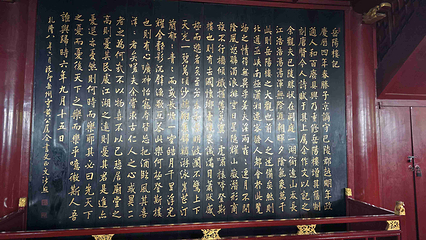 岳陽樓記
慶曆四年春滕子京謫守巴陵郡越明年政
通人和百廢具興乃重修岳陽樓增其舊制
刻唐賢今人詩賦于其上屬余作文以記之
余觀夫巴陵勝狀在洞庭一湖銜遠山吞長
江浩浩湯湯橫無際涯朝暉夕陰氣象萬千
此則岳陽樓之大觀也前人之述備矣然則
北通巫峽南極瀟湘遷客騷人多會於此覽
物之情得無異乎若夫霪雨霏霏連月不開
陰風怒號濁浪排空日星隱耀山岳潛形商
旅不行檣傾楫摧薄暮冥冥虎嘯猿啼登斯
樓也則有去國懷鄉憂讒畏譏滿目蕭然感
極而悲者矣至若春和景明波瀾不驚上下
天光一碧萬頃沙鷗翔集錦鱗游泳岸芷汀
蘭郁郁青青而或長煙一空皓月千里浮光
耀金靜影沉璧漁歌互答此樂何極登斯樓
也則有心曠神怡寵辱皆忘把酒臨風其喜
洋洋者矣嗟夫予嘗求古仁人之心或異二
者之為何哉不以物喜不以己悲居廟堂之
高則憂其民處江湖之遠則憂其君是進亦
憂退亦憂然則何時而樂耶其必曰先天下
之憂而憂後天下之樂而樂歟噫微斯人吾
誰與歸時六年九月十五日
乾隆